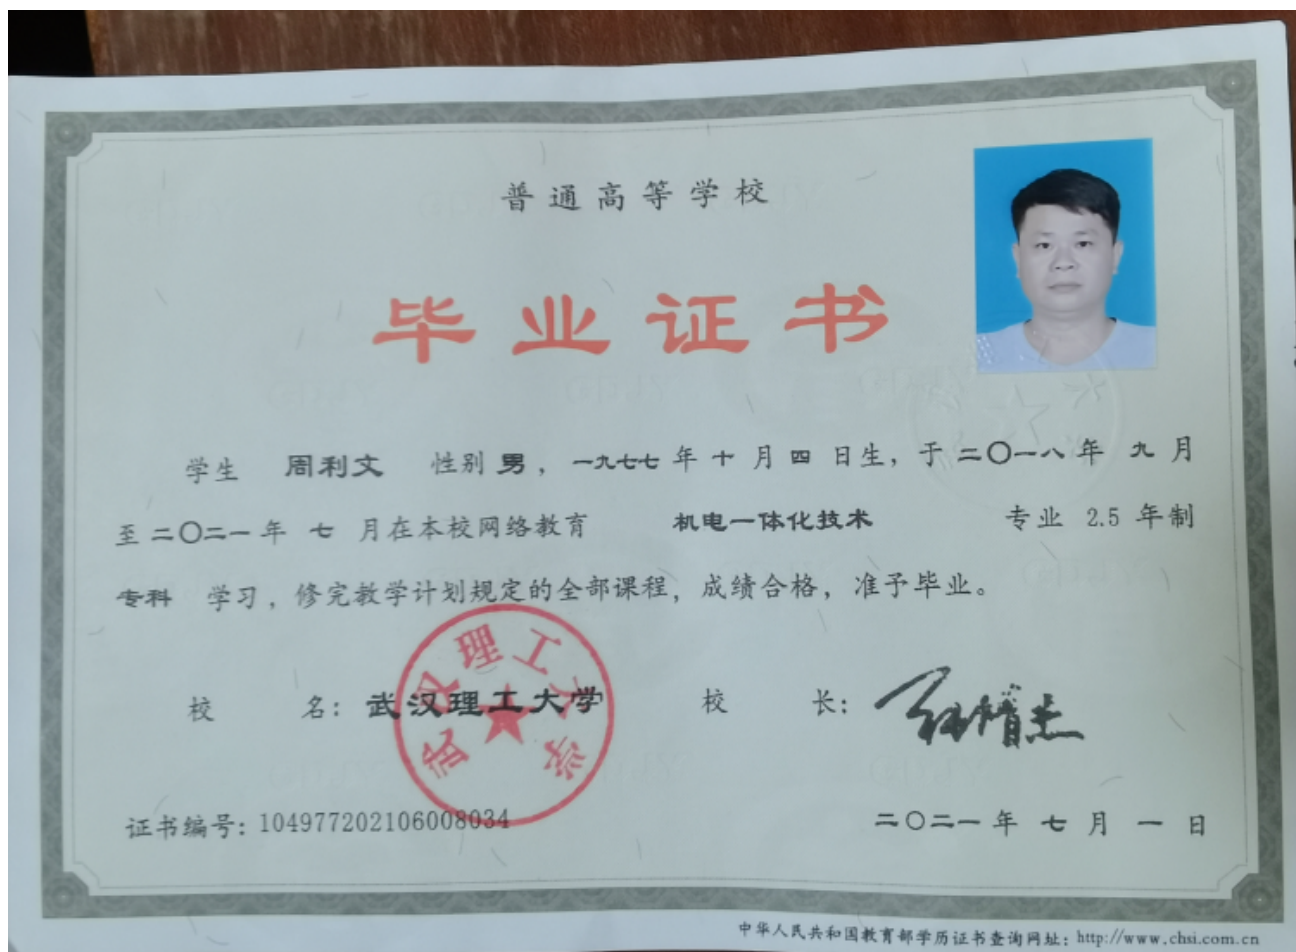 普通高等学校
毕业证书
学生 周利文 性别 男，一九七七年 十 月 四 日生，于 二〇一八年 九 月
至 二〇二一年 七 月在本校网络教育 机电一体化技术 专业 2.5 年制
专科 学习，修完教学计划规定的全部课程，成绩合格，准予毕业。
武汉理工大学
校 名：武汉理工大学 校 长：
证书编号：104977202106008034 二〇二一年 七 月 一 日
中华人民共和国教育部学历证书查询网址：http://www.chsi.com.cn